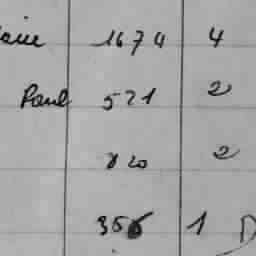 1674 4
Paul 521 2
820 2
356 1 D